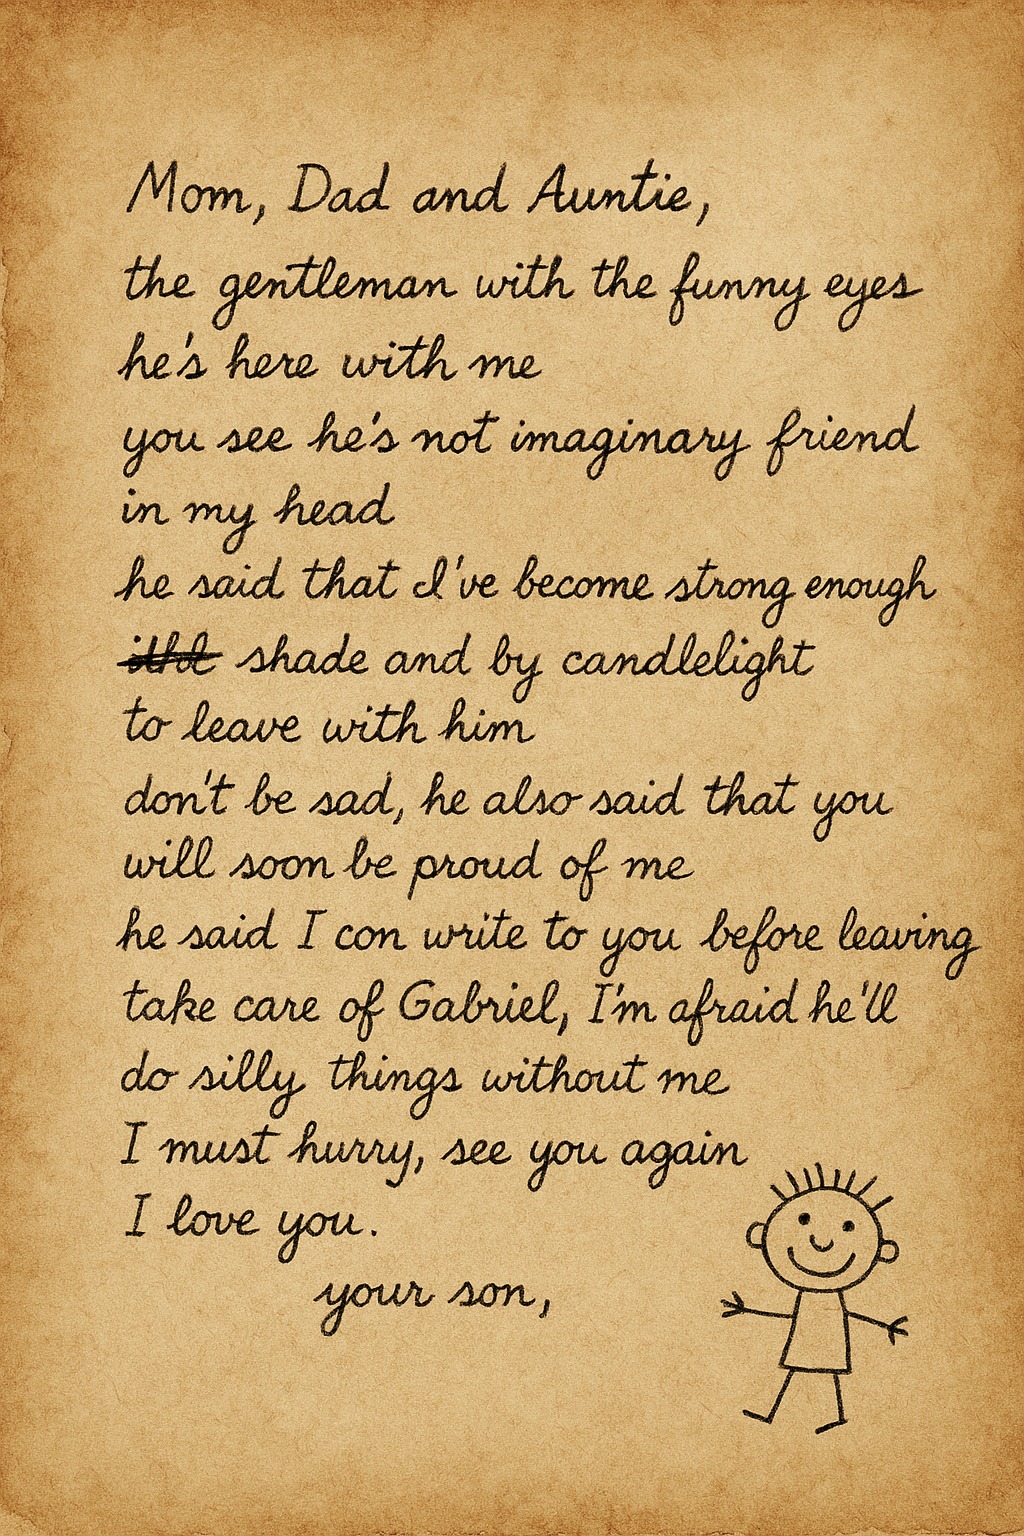 Mom, Dad and Auntie,
the gentleman with the funny eyes
he's here with me
you see he's not imaginary friend
in my head
he said that I've become strong enough
shade and by candlelight
to leave with him
don't be sad, he also said that you
will soon be proud of me
he said I con write to you before leaving
take care of Gabriel, I'm afraid he'll
do silly things without me
I must hurry, see you again
I love you.
your son,